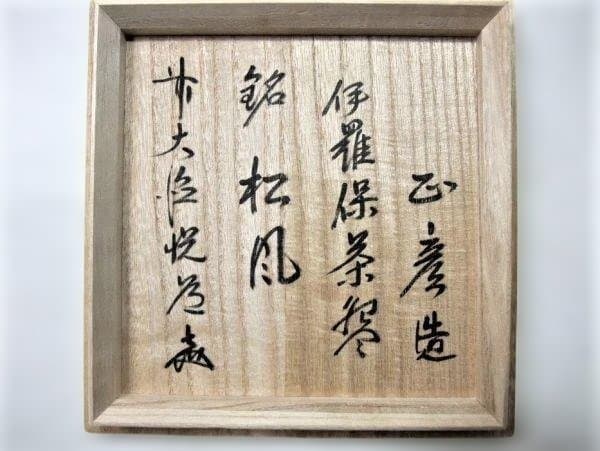 正彦造
伊羅保茶盌
銘 松風
前大徳悦道